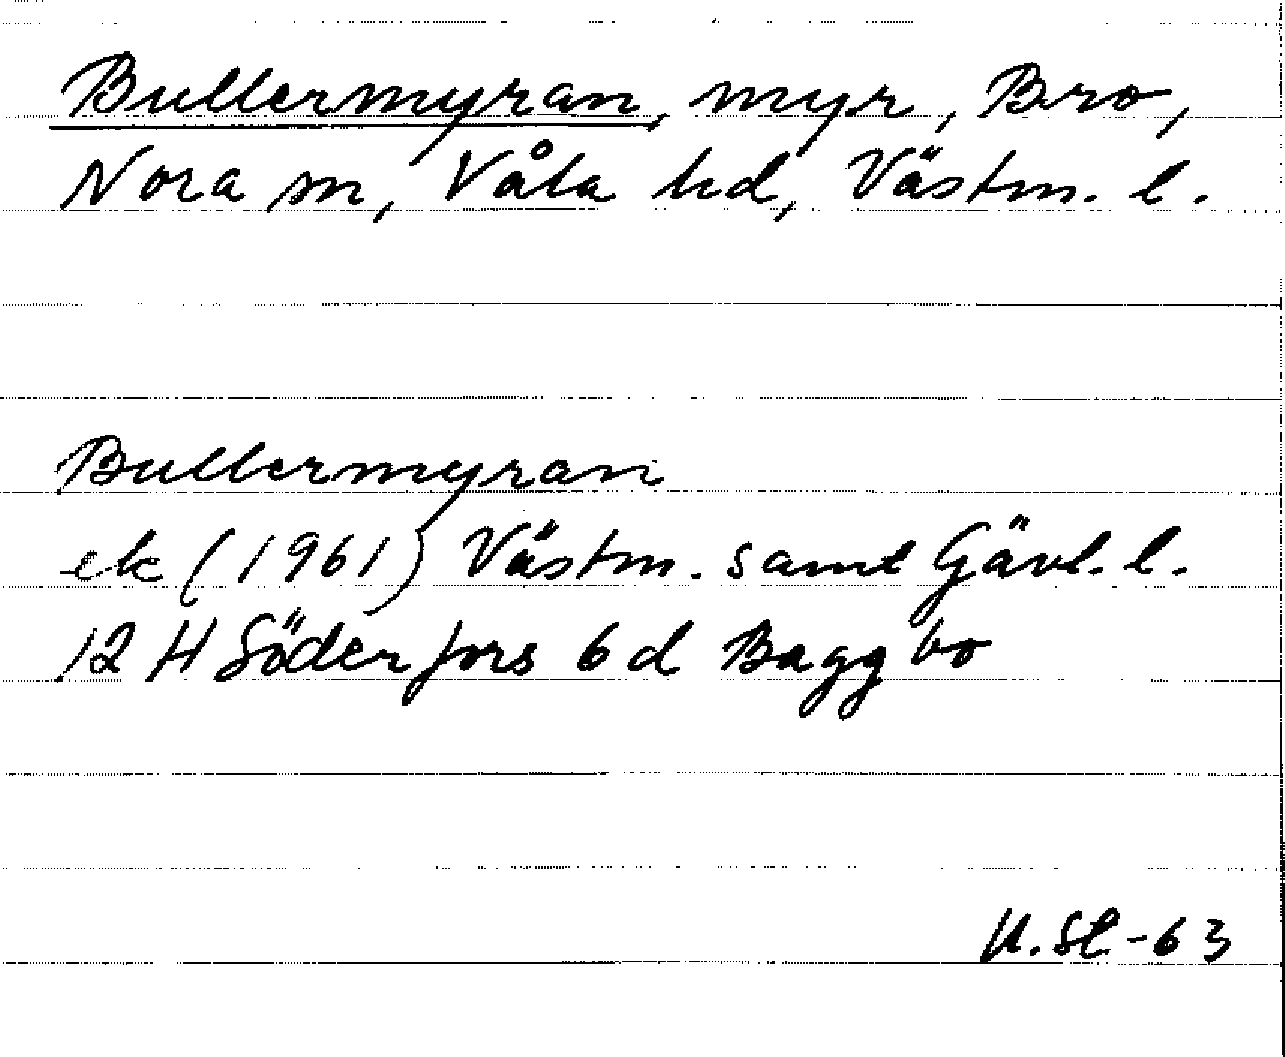 Bullermyran, myr, Bro,
Nora sn, Våla hd, Västm. l.
Bullermyran
ek (1961) Västm. samt Gävl. l.
12 H Söderfors 6 d Baggbo
U.Sl-63